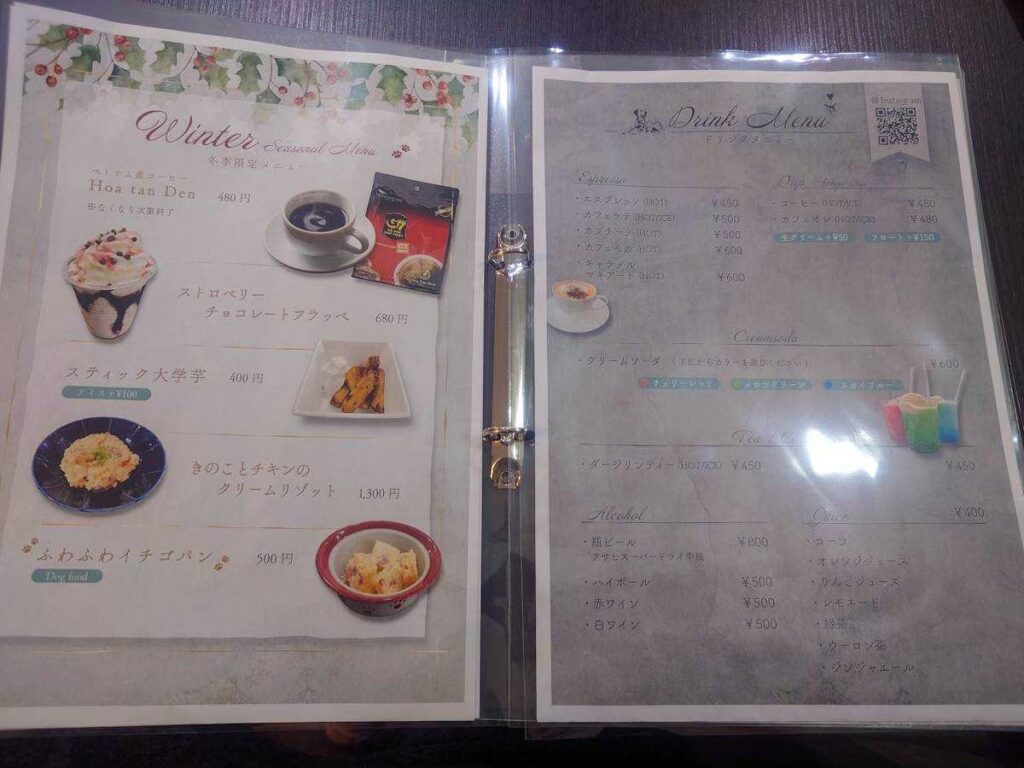 Winter Seasonal Menu
冬季限定メニュー
ベトナム産コーヒー
Hoa tan Den 480 円
※なくなり次第終了
G7
ストロベリー
チョコレートフラッペ 680 円
スティック大学芋 400 円
アイス+¥100
きのことチキンの
クリームリゾット 1,300 円
ふわふわイチゴパン 500 円
Dog food
Instagram
Drink Menu
ドリンクメニュー
Espresso
・エスプレッソ (HOT) ¥450
・カフェラテ (HOT/ICE) ¥500
・カプチーノ (HOT) ¥500
・カフェモカ (HOT) ¥600
・キャラメル
マキアート (HOT) ¥600
Drip
・コーヒー (HOT/ICE) ¥480
・カフェオレ (HOT/ICE) ¥480
生クリーム+¥50 フロート+¥150
Creamsoda
・クリームソーダ （下記からカラーを選びください） ¥600
チェリーレッド メロングリーン スカイブルー
Tea
・ダージリンティー (HOT/ICE) ¥450
¥450
Alcohol
・瓶ビール ¥800
アサヒスーパードライ中瓶
・ハイボール ¥500
・赤ワイン ¥500
・白ワイン ¥500
Juice ¥400
・コーラ
・オレンジジュース
・りんごジュース
・レモネード
・緑茶
・ウーロン茶
・ジンジャエール